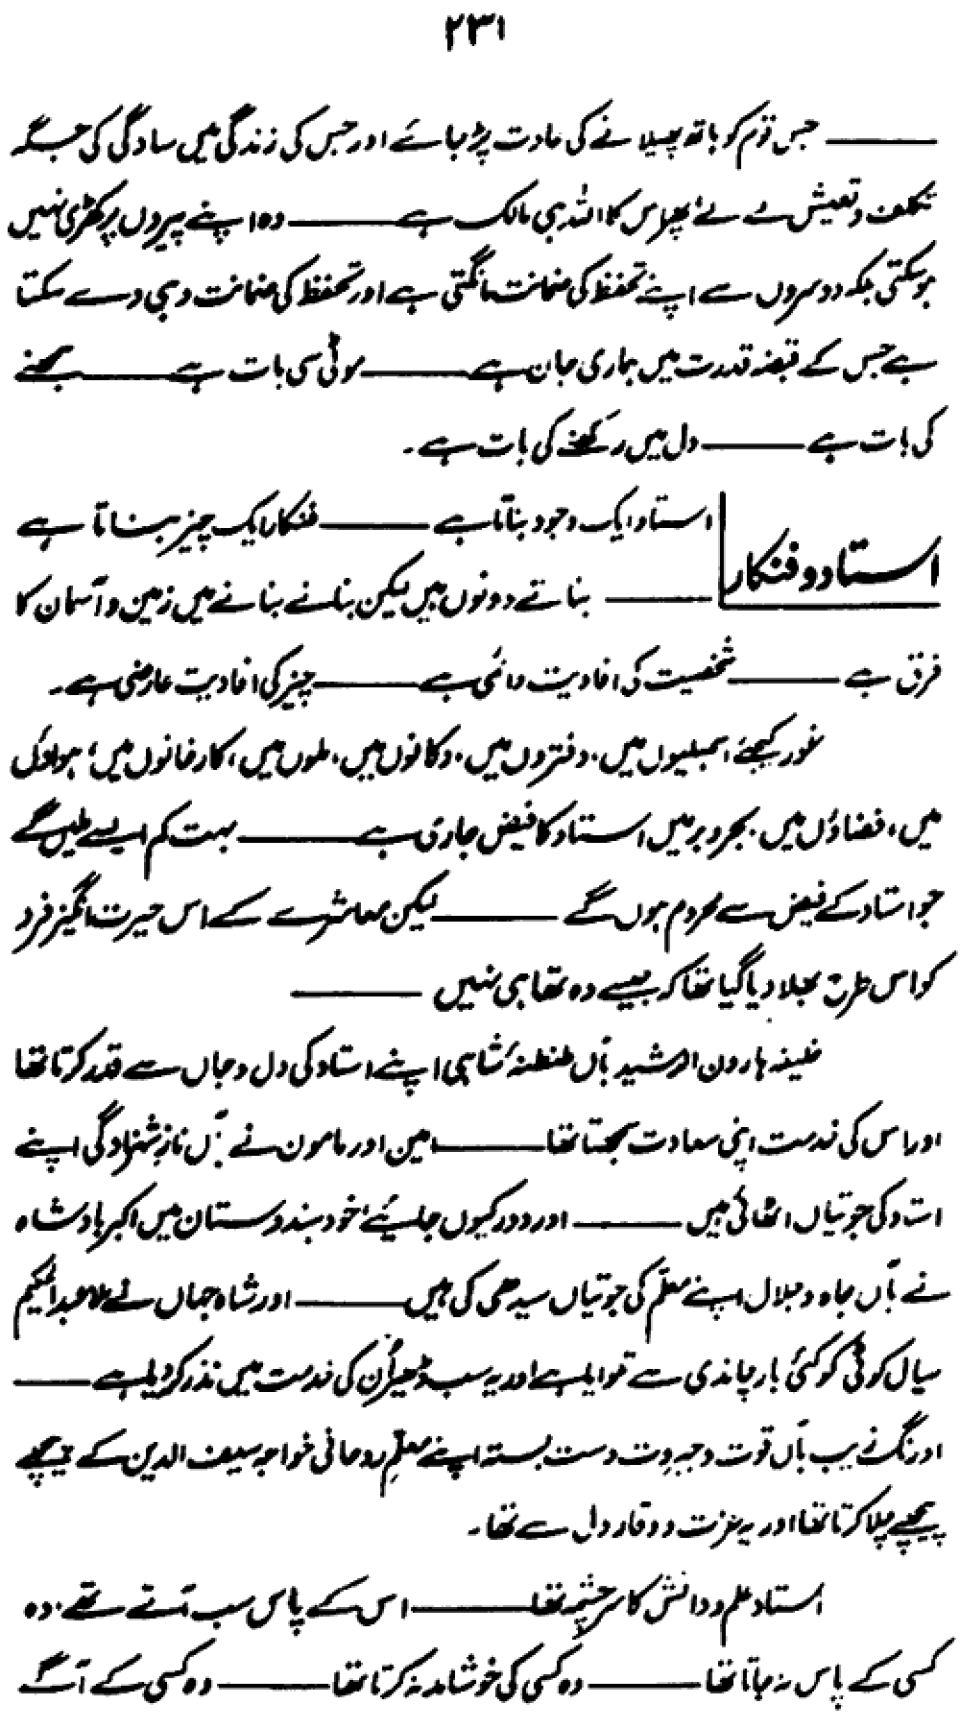 ۲۳۱
——— جس قوم کو ہاتھ پھیلانے کی عادت پڑ جائے اور جس کی زندگی میں سادگی کی جگہ
تکلف و تعیش لے لے پھر اس کا اللہ ہی مالک ہے ——— وہ اپنے پیروں پر کھڑی نہیں
ہوسکتی بلکہ دوسروں سے اپنے تحفظ کی ضمانت مانگتی ہے اور تحفظ کی ضمانت وہی دے سکتا
ہے جس کے قبضہ قدرت میں ہماری جان ہے ——— موٹی سی بات ہے ——— سمجھنے
کی بات ہے ——— دل میں رکھنے کی بات ہے۔
استاد و فنکار
استاد ایک وجود بناتا ہے ——— فنکار ایک چیز بناتا ہے
——— بناتے دونوں ہیں لیکن بنانے بنانے میں زمین و آسمان کا
فرق ہے ——— شخصیت کی افادیت دائمی ہے ——— چیز کی افادیت عارضی ہے۔
غور کیجئے اسمبلیوں میں، دفتروں میں، دکانوں میں، ملوں میں، کارخانوں میں، ہواؤں
میں، فضاؤں میں، بحر و بر میں استاد کا فیض جاری ہے ——— بہت کم ایسے ملیں گے
جو استاد کے فیض سے محروم ہوں گے ——— لیکن معاشرے کے اس حیرت انگیز فرد
کو اس طرح بھلا دیا گیا تھا کہ جیسے وہ تھا ہی نہیں ———
خلیفہ ہارون الرشید بآں طنطنۂ شاہی اپنے استاد کی دل و جاں سے قدر کرتا تھا
اور اس کی خدمت اپنی سعادت سمجھتا تھا ——— امین اور مامون نے بآں ناز شہزادگی اپنے
استاد کی جوتیاں اٹھائی ہیں ——— اور دور کیوں جائیئے خود ہندوستان میں اکبر بادشاہ
نے بآں جاہ و جلال اپنے معلّم کی جوتیاں سیدھی کی ہیں ——— اور شاہ جہاں نے ملا عبدالحکیم
سیال کوٹی کو کئی بار چاندی سے تلوایا ہے اور یہ سب ڈھیر اُن کی خدمت میں نذر کر دیا ہے ———
اورنگ زیب بآں قوت و جبروت دست بستہ اپنے معلّمِ روحانی خواجہ سیف الدین کے پیچھے
پیچھے چلا کرتا تھا اور یہ عزت و وقار دل سے تھا۔
استاد علم و دانش کا سرچشمہ تھا ——— اس کے پاس سب آتے تھے، وہ
کسی کے پاس نہ جاتا تھا ——— وہ کسی کی خوشامد نہ کرتا تھا ——— وہ کسی کے آگے